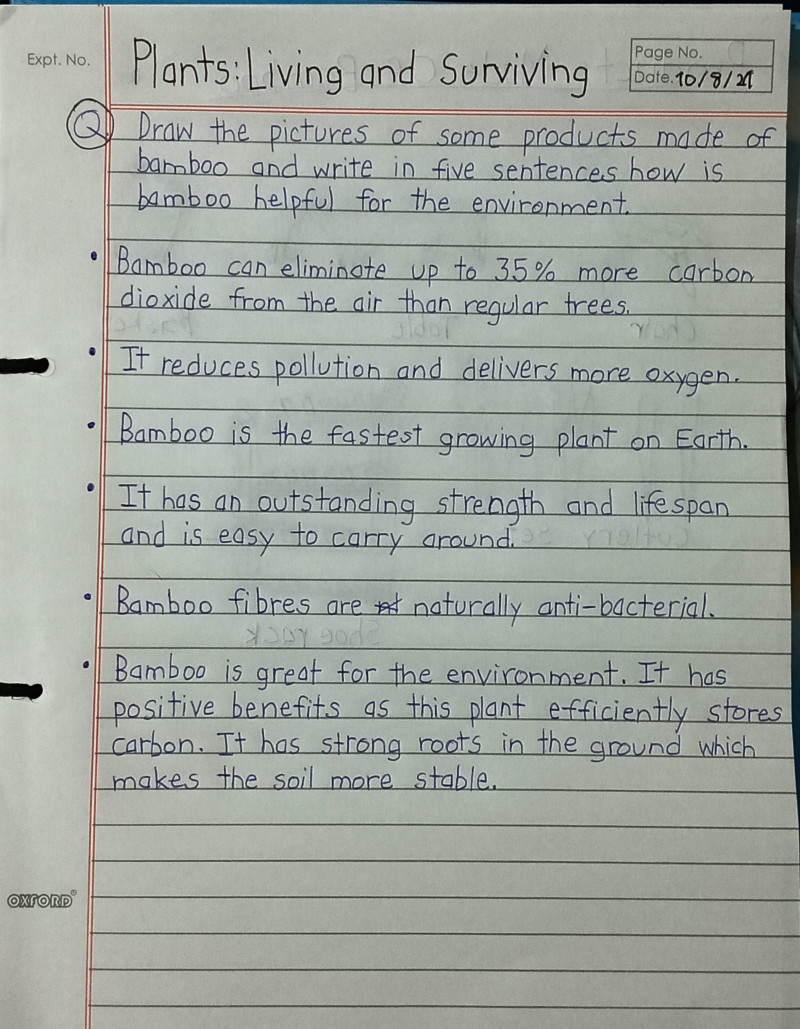 Expt. No.
Plants: Living and Surviving
Page No.
Date. 10/8/21
Q Draw the pictures of some products made of
bamboo and write in five sentences how is
bamboo helpful for the environment.
• Bamboo can eliminate up to 35% more carbon
dioxide from the air than regular trees.
• It reduces pollution and delivers more oxygen.
• Bamboo is the fastest growing plant on Earth.
• It has an outstanding strength and lifespan
and is easy to carry around.
• Bamboo fibres are naturally anti-bacterial.
• Bamboo is great for the environment. It has
positive benefits as this plant efficiently stores
carbon. It has strong roots in the ground which
makes the soil more stable.
OXFORD®